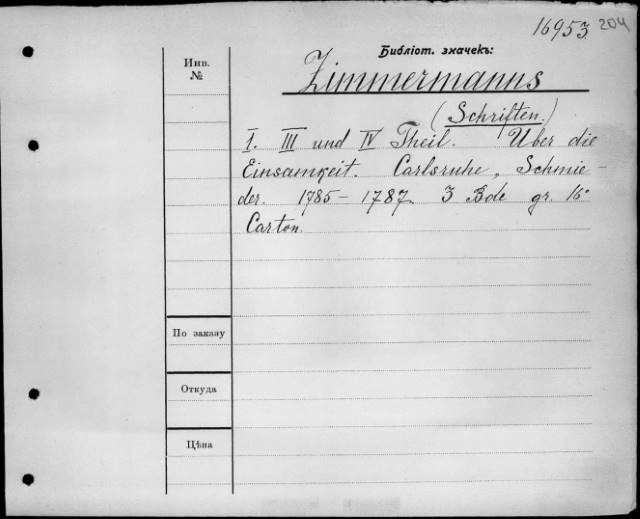 16953 204
Библіот. значекъ:
Инв.
№
Zimmermanns
(Schriften.)
I. III und IV Theil. Über die
Einsamkeit. Carlsruhe, Schmie-
der. 1785-1787. 3 Bde gr. 16°
Carton.
По заказу
Откуда
Цѣна